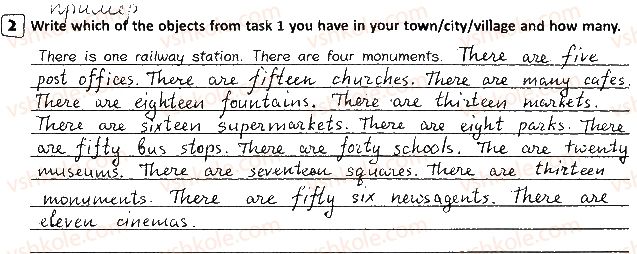 пример
2 Write which of the objects from task 1 you have in your town/city/village and how many.
There is one railway station. There are four monuments. There are five
post offices. There are fifteen churches. There are many cafes.
There are eighteen fountains. There are thirteen markets.
There are sixteen supermarkets. There are eight parks. There
are fifty bus stops. There are forty schools. The are twenty
museums. There are seventeen squares. There are thirteen
monuments. There are fifty six newsagents. There are
eleven cinemas.